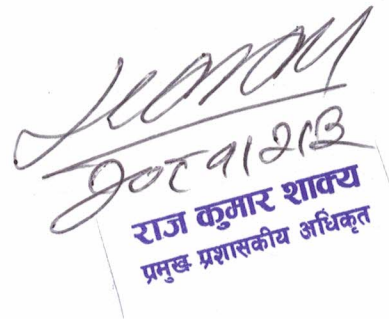 २०८१/२/३
राज कुमार शाक्य
प्रमुख प्रशासकीय अधिकृत